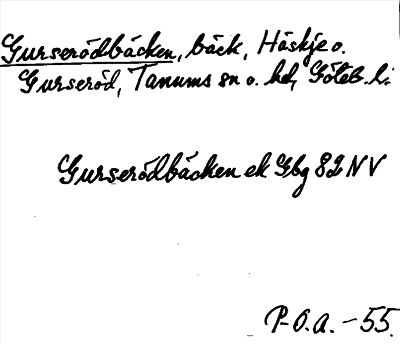 Gurserödbäcken, bäck, Höskje o.
Gurseröd, Tanums sn o. hd, Göteb. l.
Gurserödbäcken ek Gbg 82 NV
P-O.a. -55.